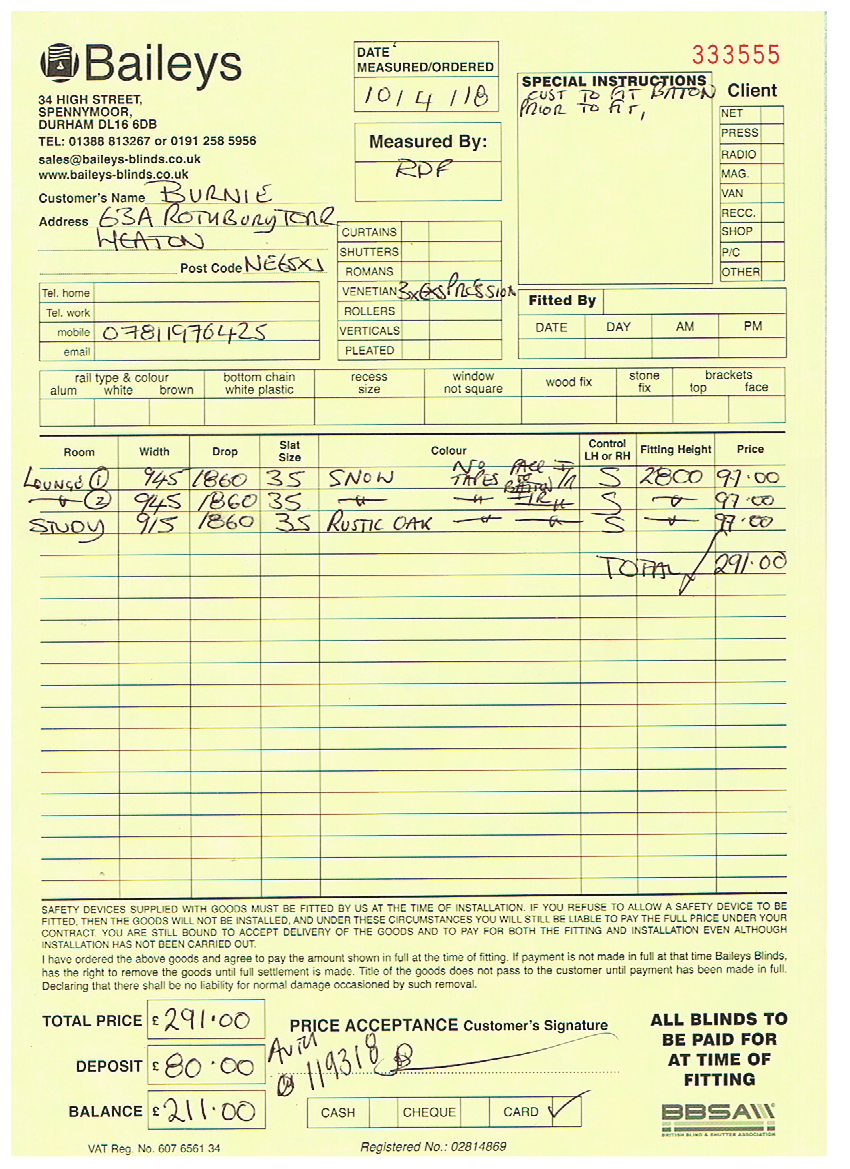 Baileys
34 HIGH STREET,
SPENNYMOOR,
DURHAM DL16 6DB
TEL: 01388 813267 or 0191 258 5956
sales@baileys-blinds.co.uk
www.baileys-blinds.co.uk
DATE
MEASURED/ORDERED
10/4/18
Measured By:
RDF
333555
SPECIAL INSTRUCTIONS
CUST TO FIT BATON
PRIOR TO FIT,
Client
NET
PRESS
RADIO
MAG.
VAN
RECC.
SHOP
P/C
OTHER
Customer's Name BURNIE
Address 63A ROTHBURY TERR
HEATON
Post Code NE65XJ
Tel. home
Tel. work
mobile 07811976425
email
CURTAINS
SHUTTERS
ROMANS
VENETIAN 3xEXSPRESSION
ROLLERS
VERTICALS
PLEATED
Fitted By
DATE DAY AM PM
rail type & colour
alum white brown
bottom chain
white plastic
recess
size
window
not square
wood fix
stone
fix
brackets
top face
Room Width Drop Slat Size Colour Control LH or RH Fitting Height Price
LOUNGE 1 945 1860 35 SNOW NO TAPES FACE TO BATON S 2800 97.00
—"— 2 945 1860 35 —"— S —"— 97.00
STUDY 915 1860 35 RUSTIC OAK —"— —"— S —"— 97.00
TOTAL 291.00
SAFETY DEVICES SUPPLIED WITH GOODS MUST BE FITTED BY US AT THE TIME OF INSTALLATION. IF YOU REFUSE TO ALLOW A SAFETY DEVICE TO BE
FITTED, THEN THE GOODS WILL NOT BE INSTALLED, AND UNDER THESE CIRCUMSTANCES YOU WILL STILL BE LIABLE TO PAY THE FULL PRICE UNDER YOUR
CONTRACT. YOU ARE STILL BOUND TO ACCEPT DELIVERY OF THE GOODS AND TO PAY FOR BOTH THE FITTING AND INSTALLATION EVEN ALTHOUGH
INSTALLATION HAS NOT BEEN CARRIED OUT.
I have ordered the above goods and agree to pay the amount shown in full at the time of fitting. If payment is not made in full at that time Baileys Blinds,
has the right to remove the goods until full settlement is made. Title of the goods does not pass to the customer until payment has been made in full.
Declaring that there shall be no liability for normal damage occasioned by such removal.
TOTAL PRICE £291.00
DEPOSIT £80.00
BALANCE £211.00
PRICE ACCEPTANCE Customer's Signature
119318
CASH CHEQUE CARD ✓
ALL BLINDS TO
BE PAID FOR
AT TIME OF
FITTING
BBSA
BRITISH BLIND & SHUTTER ASSOCIATION
VAT Reg. No. 607 6561 34
Registered No.: 02814869